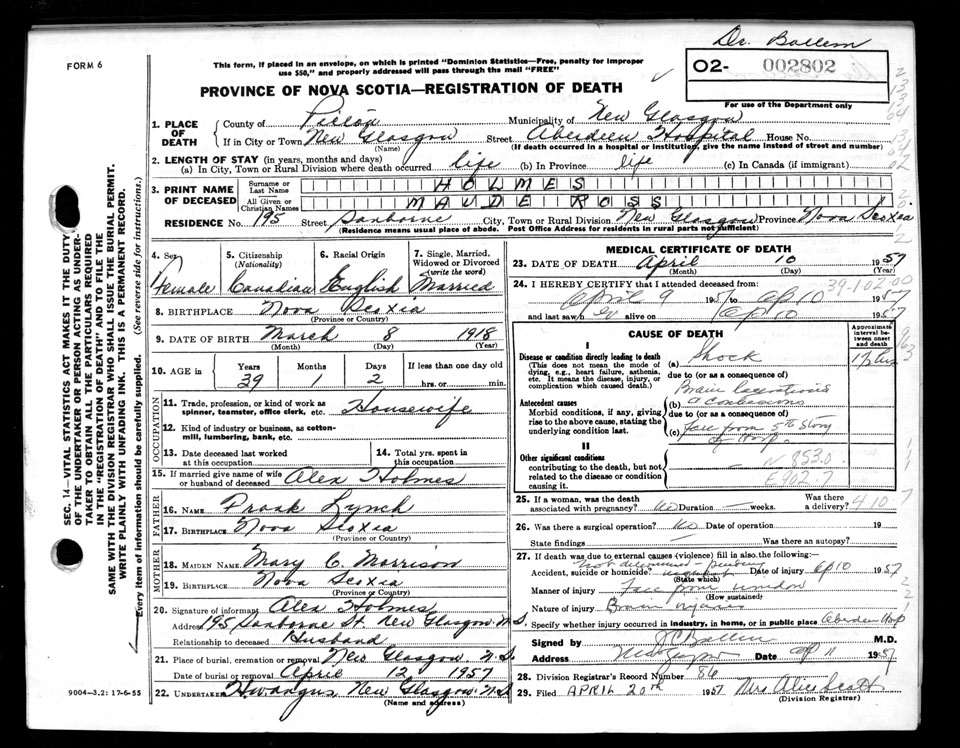 Dr. Ballem
FORM 6
This form, if placed in an envelope, on which is printed "Dominion Statistics—Free, penalty for improper
use $50," and properly addressed will pass through the mail "FREE"
O2- 002802
For use of the Department only
PROVINCE OF NOVA SCOTIA—REGISTRATION OF DEATH
1. PLACE OF DEATH
County of Pictou Municipality of New Glasgow
If in City or Town New Glasgow Street Aberdeen Hospital House No.
(Name) (If death occurred in a hospital or institution, give the name instead of street and number)
2. LENGTH OF STAY (in years, months and days)
(a) In City, Town or Rural Division where death occurred life (b) In Province life (c) In Canada (if immigrant)
3. PRINT NAME OF DECEASED
Surname or Last Name HOLMES
All Given or Christian Names MAUDE ROSS
RESIDENCE No. 195 Street Sanborne City, Town or Rural Division New Glasgow Province Nova Scotia
(Residence means usual place of abode. Post Office Address for residents in rural parts not sufficient)
4. Sex Female
5. Citizenship (Nationality) Canadian
6. Racial Origin English
7. Single, Married, Widowed or Divorced (write the word) Married
8. BIRTHPLACE Nova Scotia
(Province or Country)
9. DATE OF BIRTH March 8 1918
(Month) (Day) (Year)
10. AGE in Years 39 Months 1 Days 2 If less than one day old
hrs. or min.
OCCUPATION
11. Trade, profession, or kind of work as Housewife
spinner, teamster, office clerk, etc.
12. Kind of industry or business, as cotton-
mill, lumbering, bank, etc.
13. Date deceased last worked
at this occupation
14. Total yrs. spent in
this occupation
15. If married give name of wife
or husband of deceased Alex Holmes
FATHER
16. NAME Frank Lynch
17. BIRTHPLACE Nova Scotia
(Province or Country)
MOTHER
18. MAIDEN NAME Mary C. Morrison
19. BIRTHPLACE Nova Scotia
(Province or Country)
20. Signature of informant Alex Holmes
Address 195 Sanborne St. New Glasgow N.S.
Relationship to deceased Husband
21. Place of burial, cremation or removal New Glasgow N.S.
Date of burial or removal April 12 1957
22. UNDERTAKER New Glasgow N.S.
(Name and address)
9004—3.2: 17-6-55
MEDICAL CERTIFICATE OF DEATH
23. DATE OF DEATH April 10 1957
(Month) (Day) (Year)
24. I HEREBY CERTIFY that I attended deceased from: 39-102.00
April 9 1957 to Ap 10 1957
and last saw alive on Ap 10 1957
CAUSE OF DEATH
Approximate interval between onset and death
I
Disease or condition directly leading to death (a) Shock
(This does not mean the mode of dying, e.g., heart failure, asthenia, etc. It means the disease, injury, or complication which caused death.)
due to (or as a consequence of)
Brain lacerations
Antecedent causes (b) & Contusions
Morbid conditions, if any, giving rise to the above cause, stating the underlying condition last.
due to (or as a consequence of)
(c) Fall from 5th Story
of Hosp.
II
Other significant conditions
contributing to the death, but not related to the disease or condition causing it.
N 853.0
E902.7
25. If a woman, was the death
associated with pregnancy? No Duration weeks. Was there
a delivery?
26. Was there a surgical operation? No Date of operation 19
State findings Was there an autopsy?
27. If death was due to external causes (violence) fill in also the following:
Not determined - pending
Accident, suicide or homicide? Date of injury Ap 10 1957
(State which)
Manner of injury Fall from window
(How sustained)
Nature of injury Brain injuries
Specify whether injury occurred in industry, in home, or in public place Aberdeen Hosp
Signed by J C Ballem M.D.
Address New Glasgow Date Ap 11 1957
28. Division Registrar's Record Number 86
29. Filed APRIL 20th 1957 Mrs Alice Scott
(Division Registrar)
SEC. 14—VITAL STATISTICS ACT MAKES IT THE DUTY
OF THE UNDERTAKER OR PERSON ACTING AS UNDER-
TAKER TO OBTAIN ALL THE PARTICULARS REQUIRED
IN THE "REGISTRATION OF DEATH" AND TO FILE THE
SAME WITH THE DIVISION REGISTRAR WHO SHALL ISSUE THE BURIAL PERMIT.
WRITE PLAINLY WITH UNFADING INK. THIS IS A PERMANENT RECORD.
Every item of information should be carefully supplied. (See reverse side for instructions.)